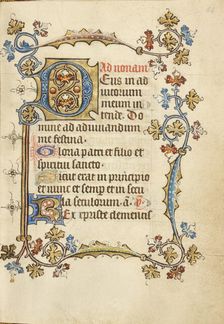 Ad nonam
Deus in ad
iutorium
meum in
tende. Do
mine ad adiuuandum
me festina.
Gloria patri et filio et
spiritui sancto.
Sicut erat in principio
et nunc et semper et in secu
la seculorum a
Ex